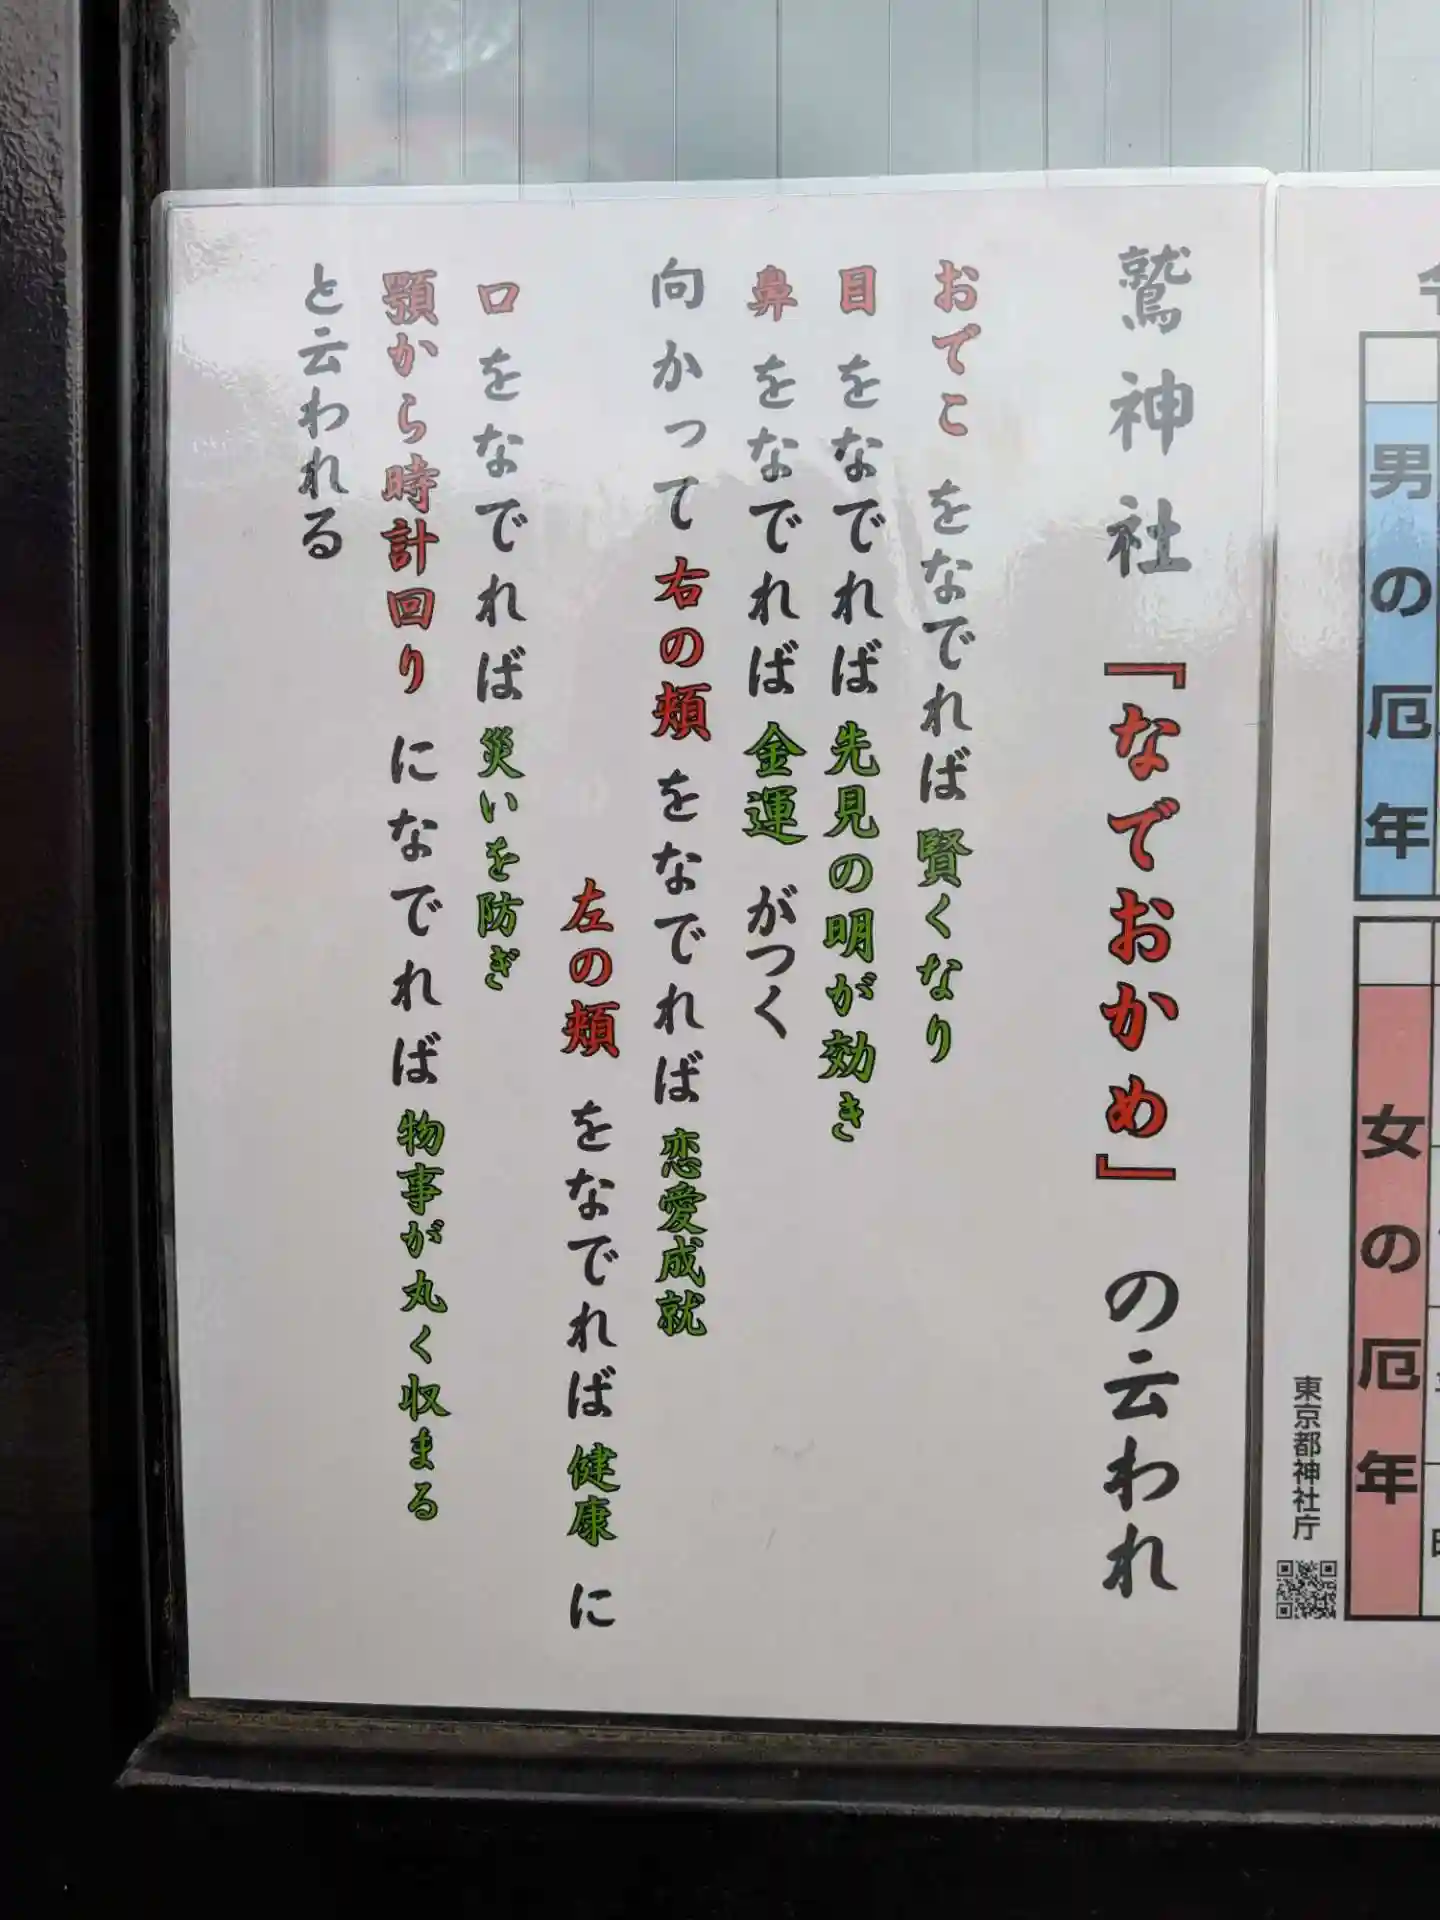 鷲神社『なでおかめ』の云われ
おでこをなでれば賢くなり
目をなでれば先見の明が効き
鼻をなでれば金運がつく
向かって右の頬をなでれば恋愛成就
左の頬をなでれば健康に
口をなでれば災いを防ぎ
顎から時計回りになでれば物事が丸く収まる
と云われる
男の厄年
女の厄年
東京都神社庁